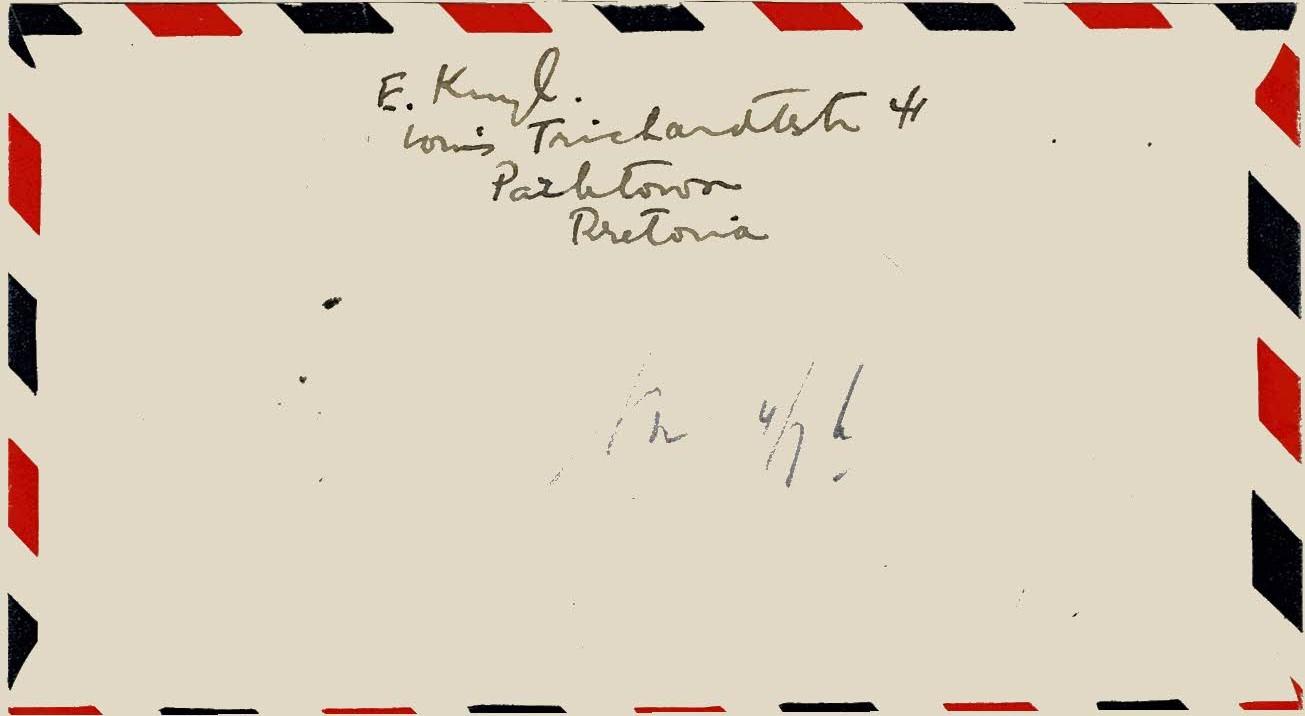 E. Kruyl.
Louis Trichardtstr 41
Parktown
Pretoria
4/7